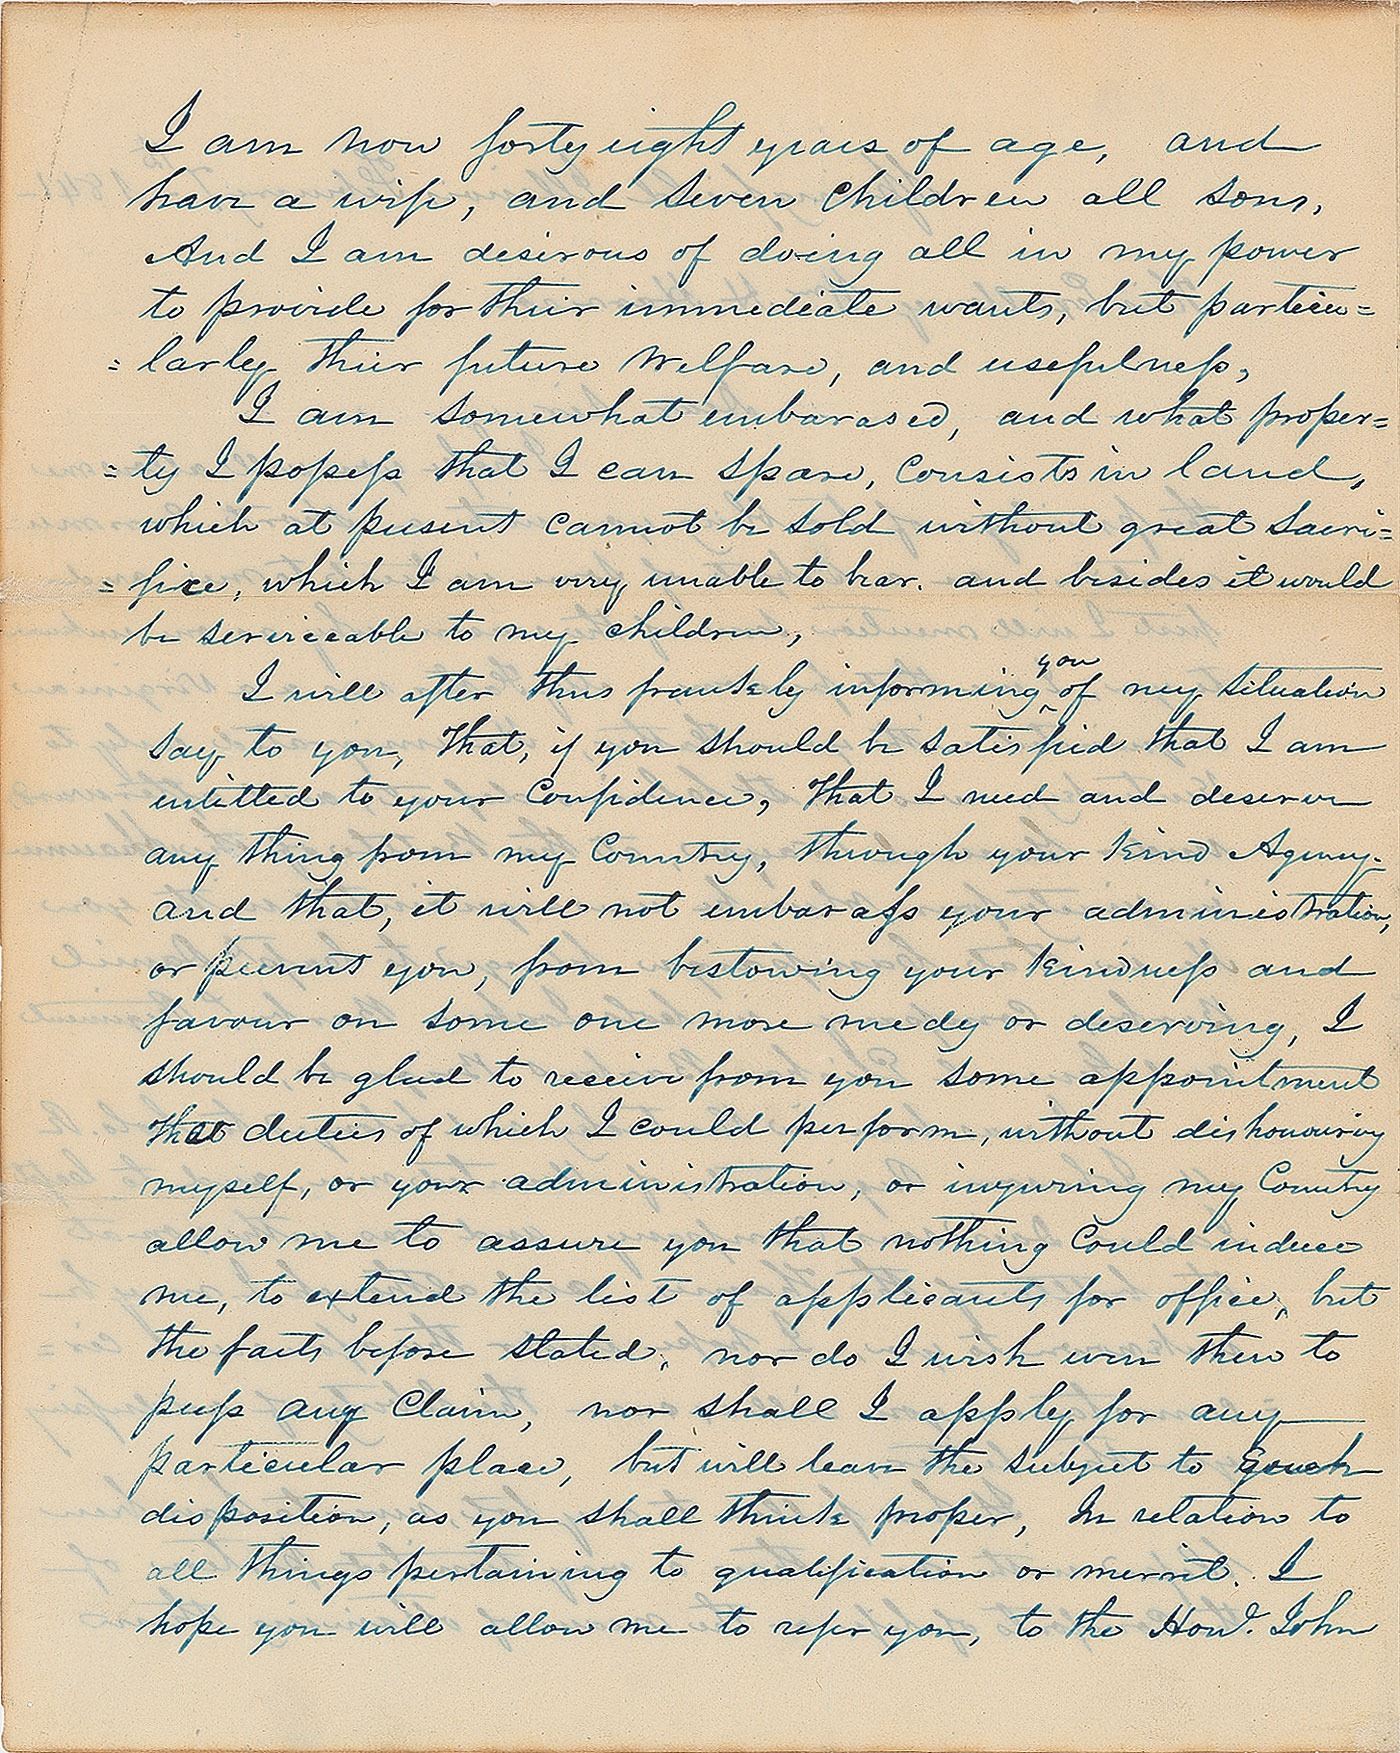 I am now forty eight years of age, and
have a wife, and seven children all sons,
And I am desirous of doing all in my power
to provide for thier immediate wants, but particu=
=larly thier future Welfare, and usefulness,
I am somewhat embarased, and what proper=
=ty I possess that I can spare, Consists in land,
which at present cannot be sold without great sacri=
=fice, which I am very unable to bear. and besides it would
be serviceable to my children,
I will after thus frankly informing you of my situation
say to you, That, if you should be satisfied that I am
intitled to your Confidence, That I need and deserve
any thing from my Country, through your kind Agency.
and that, it will not embarass your administration,
or prevent you, from bestowing your kindness and
favour on some one more needy or deserving, I
should be glad to receive from you some appointment
the duties of which I could perform, without dishonouring
myself, or your administration, or injuring my Country
allow me to assure you that nothing Could induce
me, to extend the list of applicants for office, but
the facts before stated, nor do I wish even then to
press any Claim, nor shall I apply for any
particular place, but will leave the subject to such
disposition, as you shall think proper, In relation to
all things pertaining to qualification or merrit. I
hope you will allow me to refer you, to the Hon. John